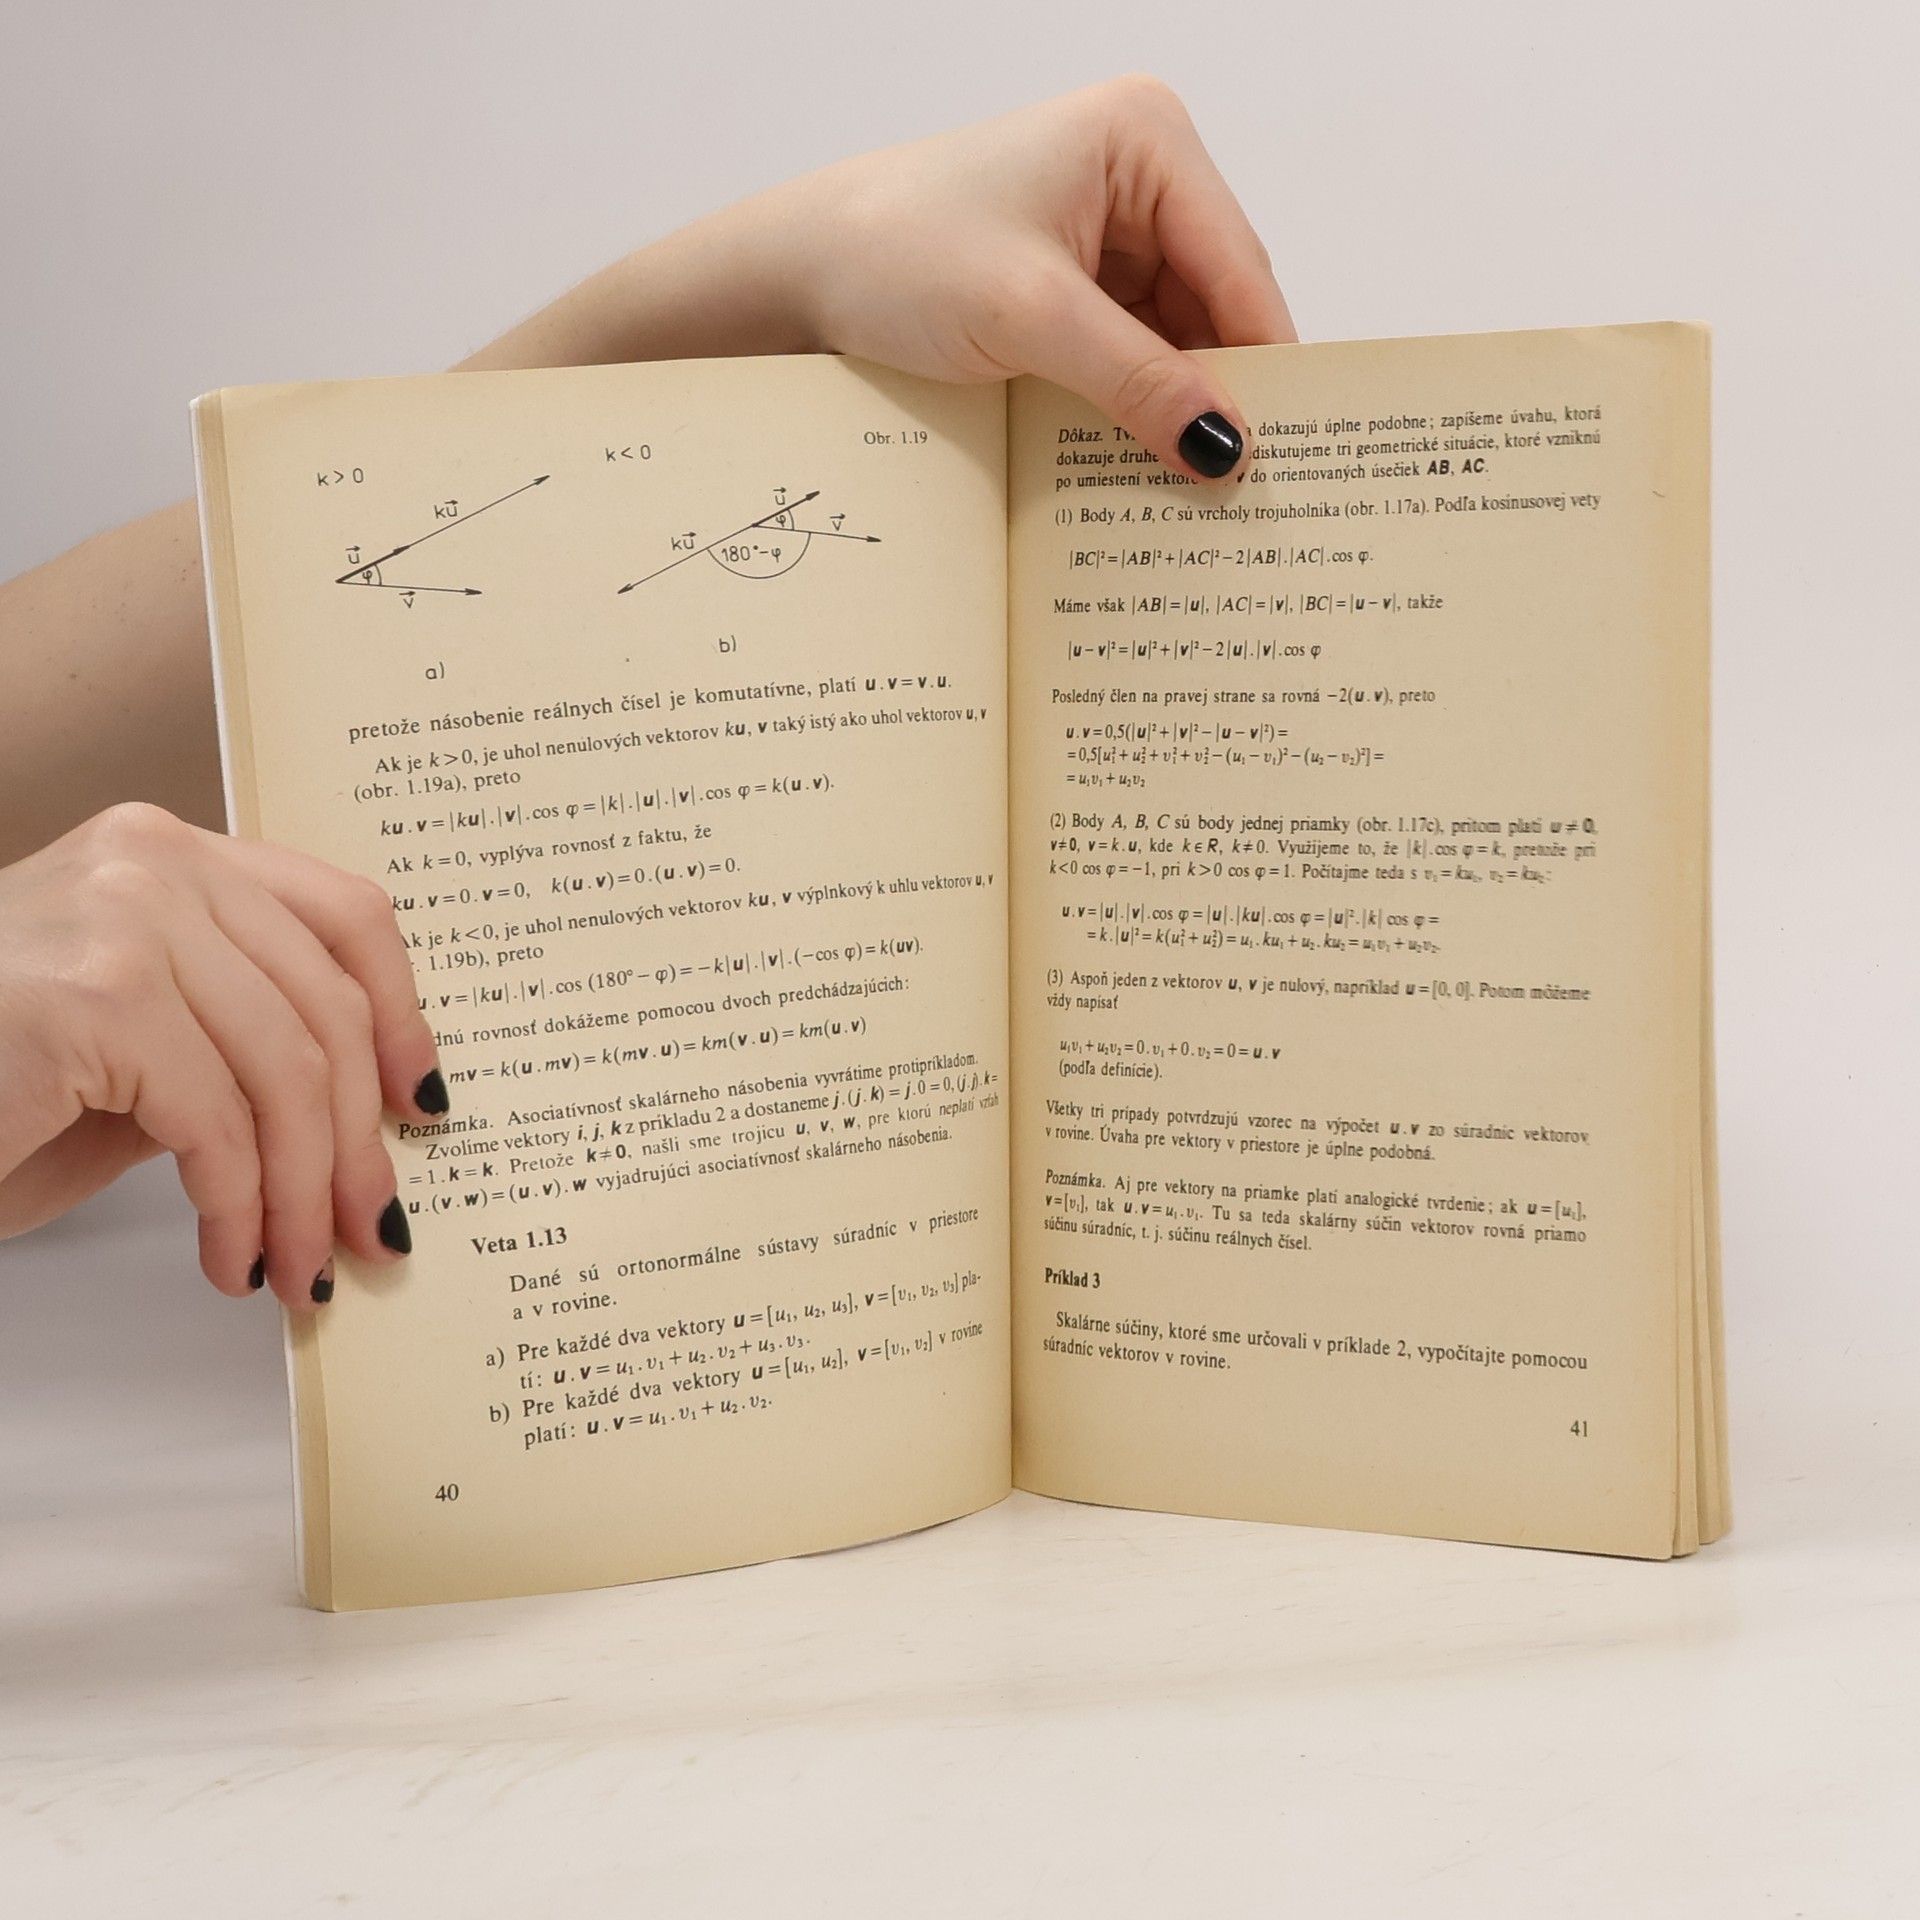 Obr. 1.19
k > 0
k < 0
ku⃗
u⃗
φ
v⃗
u⃗
φ
v⃗
ku⃗
180°-φ
a)
b)
pretože násobenie reálnych čísel je komutatívne, platí u.v=v.u.
Ak je k>0, je uhol nenulových vektorov ku, v taký istý ako uhol vektorov u, v
(obr. 1.19a), preto
ku.v=|ku|.|v|.cos φ=|k|.|u|.|v|.cos φ=k(u.v).
Ak k=0, vyplýva rovnosť z faktu, že
ku.v=0.v=0, k(u.v)=0.(u.v)=0.
k je k<0, je uhol nenulových vektorov ku, v výplnkový k uhlu vektorov u, v
1.19b), preto
u.v=|ku|.|v|.cos (180°-φ)=-k|u|.|v|.(-cos φ)=k(uv).
dnú rovnosť dokážeme pomocou dvoch predchádzajúcich:
mv=k(u.mv)=k(mv.u)=km(v.u)=km(u.v)
Poznámka. Asociatívnosť skalárneho násobenia vyvrátime protipríkladom.
Zvolíme vektory i, j, k z príkladu 2 a dostaneme j.(j.k)=j.0=0, (j.j).k=
=1.k=k. Pretože k≠0, našli sme trojicu u, v, w, pre ktorú neplatí vzťah
u.(v.w)=(u.v).w vyjadrujúci asociatívnosť skalárneho násobenia.
Veta 1.13
Dané sú ortonormálne sústavy súradníc v priestore
a v rovine.
a) Pre každé dva vektory u=[u₁, u₂, u₃], v=[v₁, v₂, v₃] pla-
tí: u.v=u₁.v₁+u₂.v₂+u₃.v₃.
b) Pre každé dva vektory u=[u₁, u₂], v=[v₁, v₂] v rovine
platí: u.v=u₁.v₁+u₂.v₂.
40
Dôkaz. dokazujú úplne podobne; zapíšeme úvahu, ktorá
dokazuje diskutujeme tri geometrické situácie, ktoré vzniknú
po umiestení v do orientovaných úsečiek AB, AC.
(1) Body A, B, C sú vrcholy trojuholníka (obr. 1.17a). Podľa kosínusovej vety
|BC|²=|AB|²+|AC|²-2|AB|.|AC|.cos φ.
Máme však |AB|=|u|, |AC|=|v|, |BC|=|u-v|, takže
|u-v|²=|u|²+|v|²-2|u|.|v|.cos φ
Posledný člen na pravej strane sa rovná -2(u.v), preto
u.v=0,5(|u|²+|v|²-|u-v|²)=
=0,5[u₁²+u₂²+v₁²+v₂²-(u₁-v₁)²-(u₂-v₂)²]=
=u₁v₁+u₂v₂
(2) Body A, B, C sú body jednej priamky (obr. 1.17c), pritom platí u≠0,
v≠0, v=k.u, kde k∈R, k≠0. Využijeme to, že |k|.cos φ=k, pretože pri
k<0 cos φ=-1, pri k>0 cos φ=1. Počítajme teda s v₁=ku₁, v₂=ku₂:
u.v=|u|.|v|.cos φ=|u|.|ku|.cos φ=|u|².|k| cos φ=
=k.|u|²=k(u₁²+u₂²)=u₁.ku₁+u₂.ku₂=u₁v₁+u₂v₂.
(3) Aspoň jeden z vektorov u, v je nulový, napríklad u=[0, 0]. Potom môžeme
vždy napísať
u₁v₁+u₂v₂=0.v₁+0.v₂=0=u.v
(podľa definície).
Všetky tri prípady potvrdzujú vzorec na výpočet u.v zo súradníc vektorov
v rovine. Úvaha pre vektory v priestore je úplne podobná.
Poznámka. Aj pre vektory na priamke platí analogické tvrdenie; ak u=[u₁],
v=[v₁], tak u.v=u₁.v₁. Tu sa teda skalárny súčin vektorov rovná priamo
súčinu súradníc, t. j. súčinu reálnych čísel.
Príklad 3
Skalárne súčiny, ktoré sme určovali v príklade 2, vypočítajte pomocou
súradníc vektorov v rovine.
41